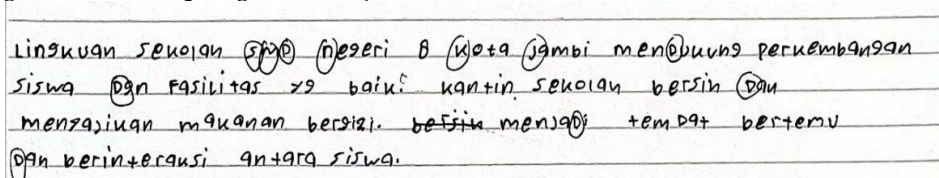 Lingkuan sekolah SMP Negeri 8 Kota Jambi menDukung perkembangan
siswa Dan Fasilitas yg baik. kantin sekolah bersih Dan
mengajikan makanan bergizi. menjaDi temDat bertemu
Dan berinteraksi antara siswa.